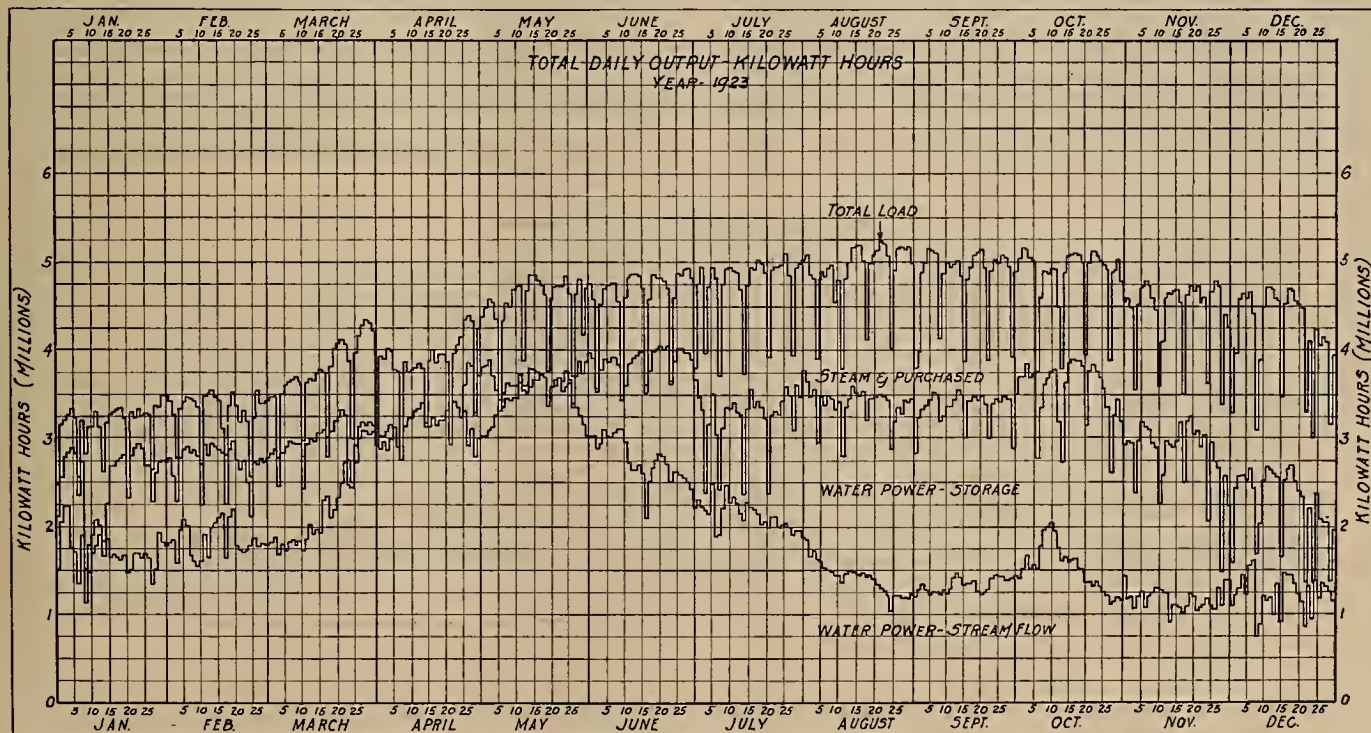 JAN. FEB. MARCH APRIL MAY JUNE JULY AUGUST SEPT. OCT. NOV. DEC.
5 10 15 20 25 5 10 15 20 25 5 10 15 20 25 5 10 15 20 25 5 10 15 20 25 5 10 15 20 25 5 10 15 20 25 5 10 15 20 25 5 10 15 20 25 5 10 15 20 25 5 10 15 20 25 5 10 15 20 25
TOTAL DAILY OUTPUT - KILOWATT HOURS
YEAR - 1923
6 6
TOTAL LOAD
5 5
4 4
STEAM & PURCHASED
3 3
WATER POWER - STORAGE
2 2
1 1
WATER POWER - STREAM FLOW
0 0
KILOWATT HOURS (MILLIONS)
KILOWATT HOURS (MILLIONS)
5 10 15 20 25 5 10 15 20 25 5 10 15 20 25 5 10 15 20 25 5 10 15 20 25 5 10 15 20 25 5 10 15 20 25 5 10 15 20 25 5 10 15 20 25 5 10 15 20 25 5 10 15 20 25 5 10 15 20 25
JAN. - FEB. MARCH APRIL MAY JUNE JULY AUGUST SEPT. OCT. NOV. DEC.